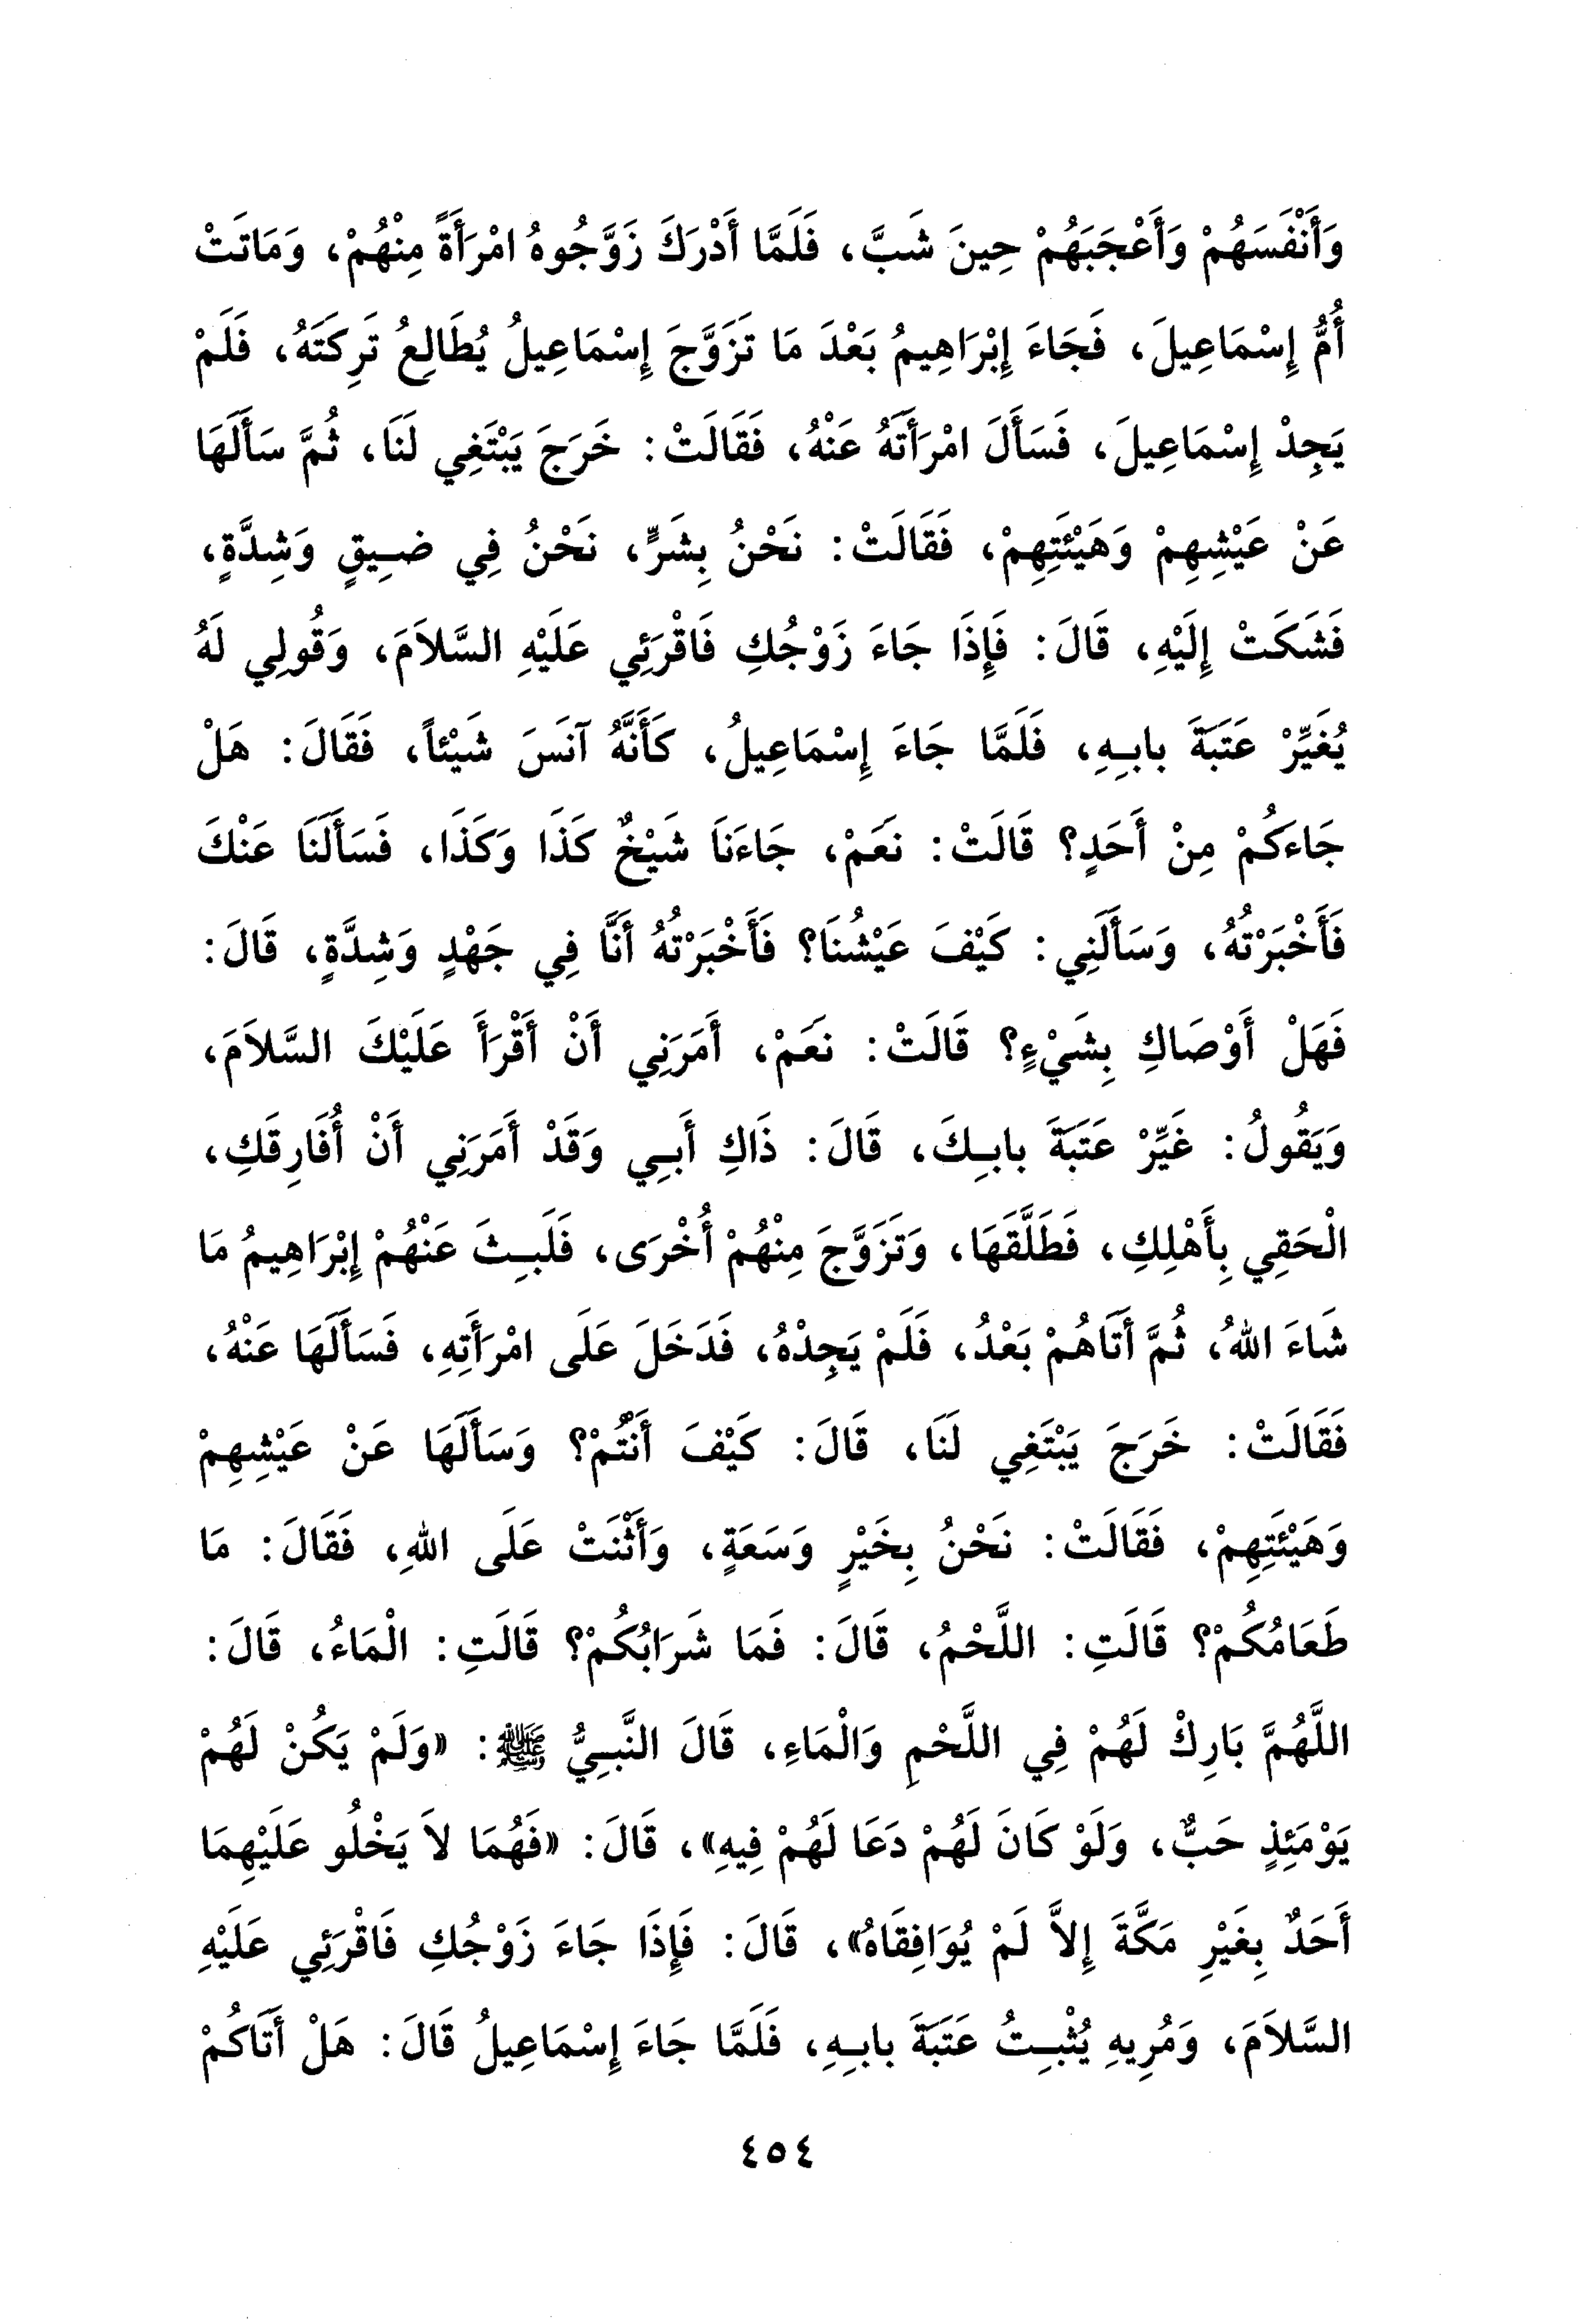 وَأَنْفَسَهُمْ وَأَعْجَبَهُمْ حِينَ شَبَّ، فَلَمَّا أَدْرَكَ زَوَّجُوهُ امْرَأَةً مِنْهُمْ، وَمَاتَتْ
أُمُّ إِسْمَاعِيلَ، فَجَاءَ إِبْرَاهِيمُ بَعْدَ مَا تَزَوَّجَ إِسْمَاعِيلُ يُطَالِعُ تَرِكَتَهُ، فَلَمْ
يَجِدْ إِسْمَاعِيلَ، فَسَأَلَ امْرَأَتَهُ عَنْهُ، فَقَالَتْ: خَرَجَ يَبْتَغِي لَنَا، ثُمَّ سَأَلَهَا
عَنْ عَيْشِهِمْ وَهَيْئَتِهِمْ، فَقَالَتْ: نَحْنُ بِشَرٍّ، نَحْنُ فِي ضِيقٍ وَشِدَّةٍ،
فَشَكَتْ إِلَيْهِ، قَالَ: فَإِذَا جَاءَ زَوْجُكِ فَاقْرَئِي عَلَيْهِ السَّلاَمَ، وَقُولِي لَهُ
يُغَيِّرْ عَتَبَةَ بابِهِ، فَلَمَّا جَاءَ إِسْمَاعِيلُ، كَأَنَّهُ آنَسَ شَيْئاً، فَقَالَ: هَلْ
جَاءَكُمْ مِنْ أَحَدٍ؟ قَالَتْ: نَعَمْ، جَاءَنَا شَيْخٌ كَذَا وَكَذَا، فَسَأَلَنَا عَنْكَ
فَأَخْبَرْتُهُ، وَسَأَلَنِي: كَيْفَ عَيْشُنَا؟ فَأَخْبَرْتُهُ أَنَّا فِي جَهْدٍ وَشِدَّةٍ، قَالَ:
فَهَلْ أَوْصَاكِ بِشَيْءٍ؟ قَالَتْ: نَعَمْ، أَمَرَنِي أَنْ أَقْرَأَ عَلَيْكَ السَّلاَمَ،
وَيَقُولُ: غَيِّرْ عَتَبَةَ بابِكَ، قَالَ: ذَاكِ أَبِي وَقَدْ أَمَرَنِي أَنْ أُفَارِقَكِ،
الْحَقِي بِأَهْلِكِ، فَطَلَّقَهَا، وَتَزَوَّجَ مِنْهُمْ أُخْرَى، فَلَبِثَ عَنْهُمْ إِبْرَاهِيمُ مَا
شَاءَ اللهُ، ثُمَّ أَتَاهُمْ بَعْدُ، فَلَمْ يَجِدْهُ، فَدَخَلَ عَلَى امْرَأَتِهِ، فَسَأَلَهَا عَنْهُ،
فَقَالَتْ: خَرَجَ يَبْتَغِي لَنَا، قَالَ: كَيْفَ أَنْتُمْ؟ وَسَأَلَهَا عَنْ عَيْشِهِمْ
وَهَيْئَتِهِمْ، فَقَالَتْ: نَحْنُ بِخَيْرٍ وَسَعَةٍ، وَأَثْنَتْ عَلَى اللهِ، فَقَالَ: مَا
طَعَامُكُمْ؟ قَالَتِ: اللَّحْمُ، قَالَ: فَمَا شَرَابُكُمْ؟ قَالَتِ: الْمَاءُ، قَالَ:
اللَّهُمَّ بَارِكْ لَهُمْ فِي اللَّحْمِ وَالْمَاءِ، قَالَ النَّبِيُّ ﷺ: «وَلَمْ يَكُنْ لَهُمْ
يَوْمَئِذٍ حَبٌّ، وَلَوْ كَانَ لَهُمْ دَعَا لَهُمْ فِيهِ»، قَالَ: «فَهُمَا لاَ يَخْلُو عَلَيْهِمَا
أَحَدٌ بِغَيْرِ مَكَّةَ إِلاَّ لَمْ يُوَافِقَاهُ»، قَالَ: فَإِذَا جَاءَ زَوْجُكِ فَاقْرَئِي عَلَيْهِ
السَّلاَمَ، وَمُرِيهِ يُثْبِتُ عَتَبَةَ بابِهِ، فَلَمَّا جَاءَ إِسْمَاعِيلُ قَالَ: هَلْ أَتَاكُمْ
٤٥٤